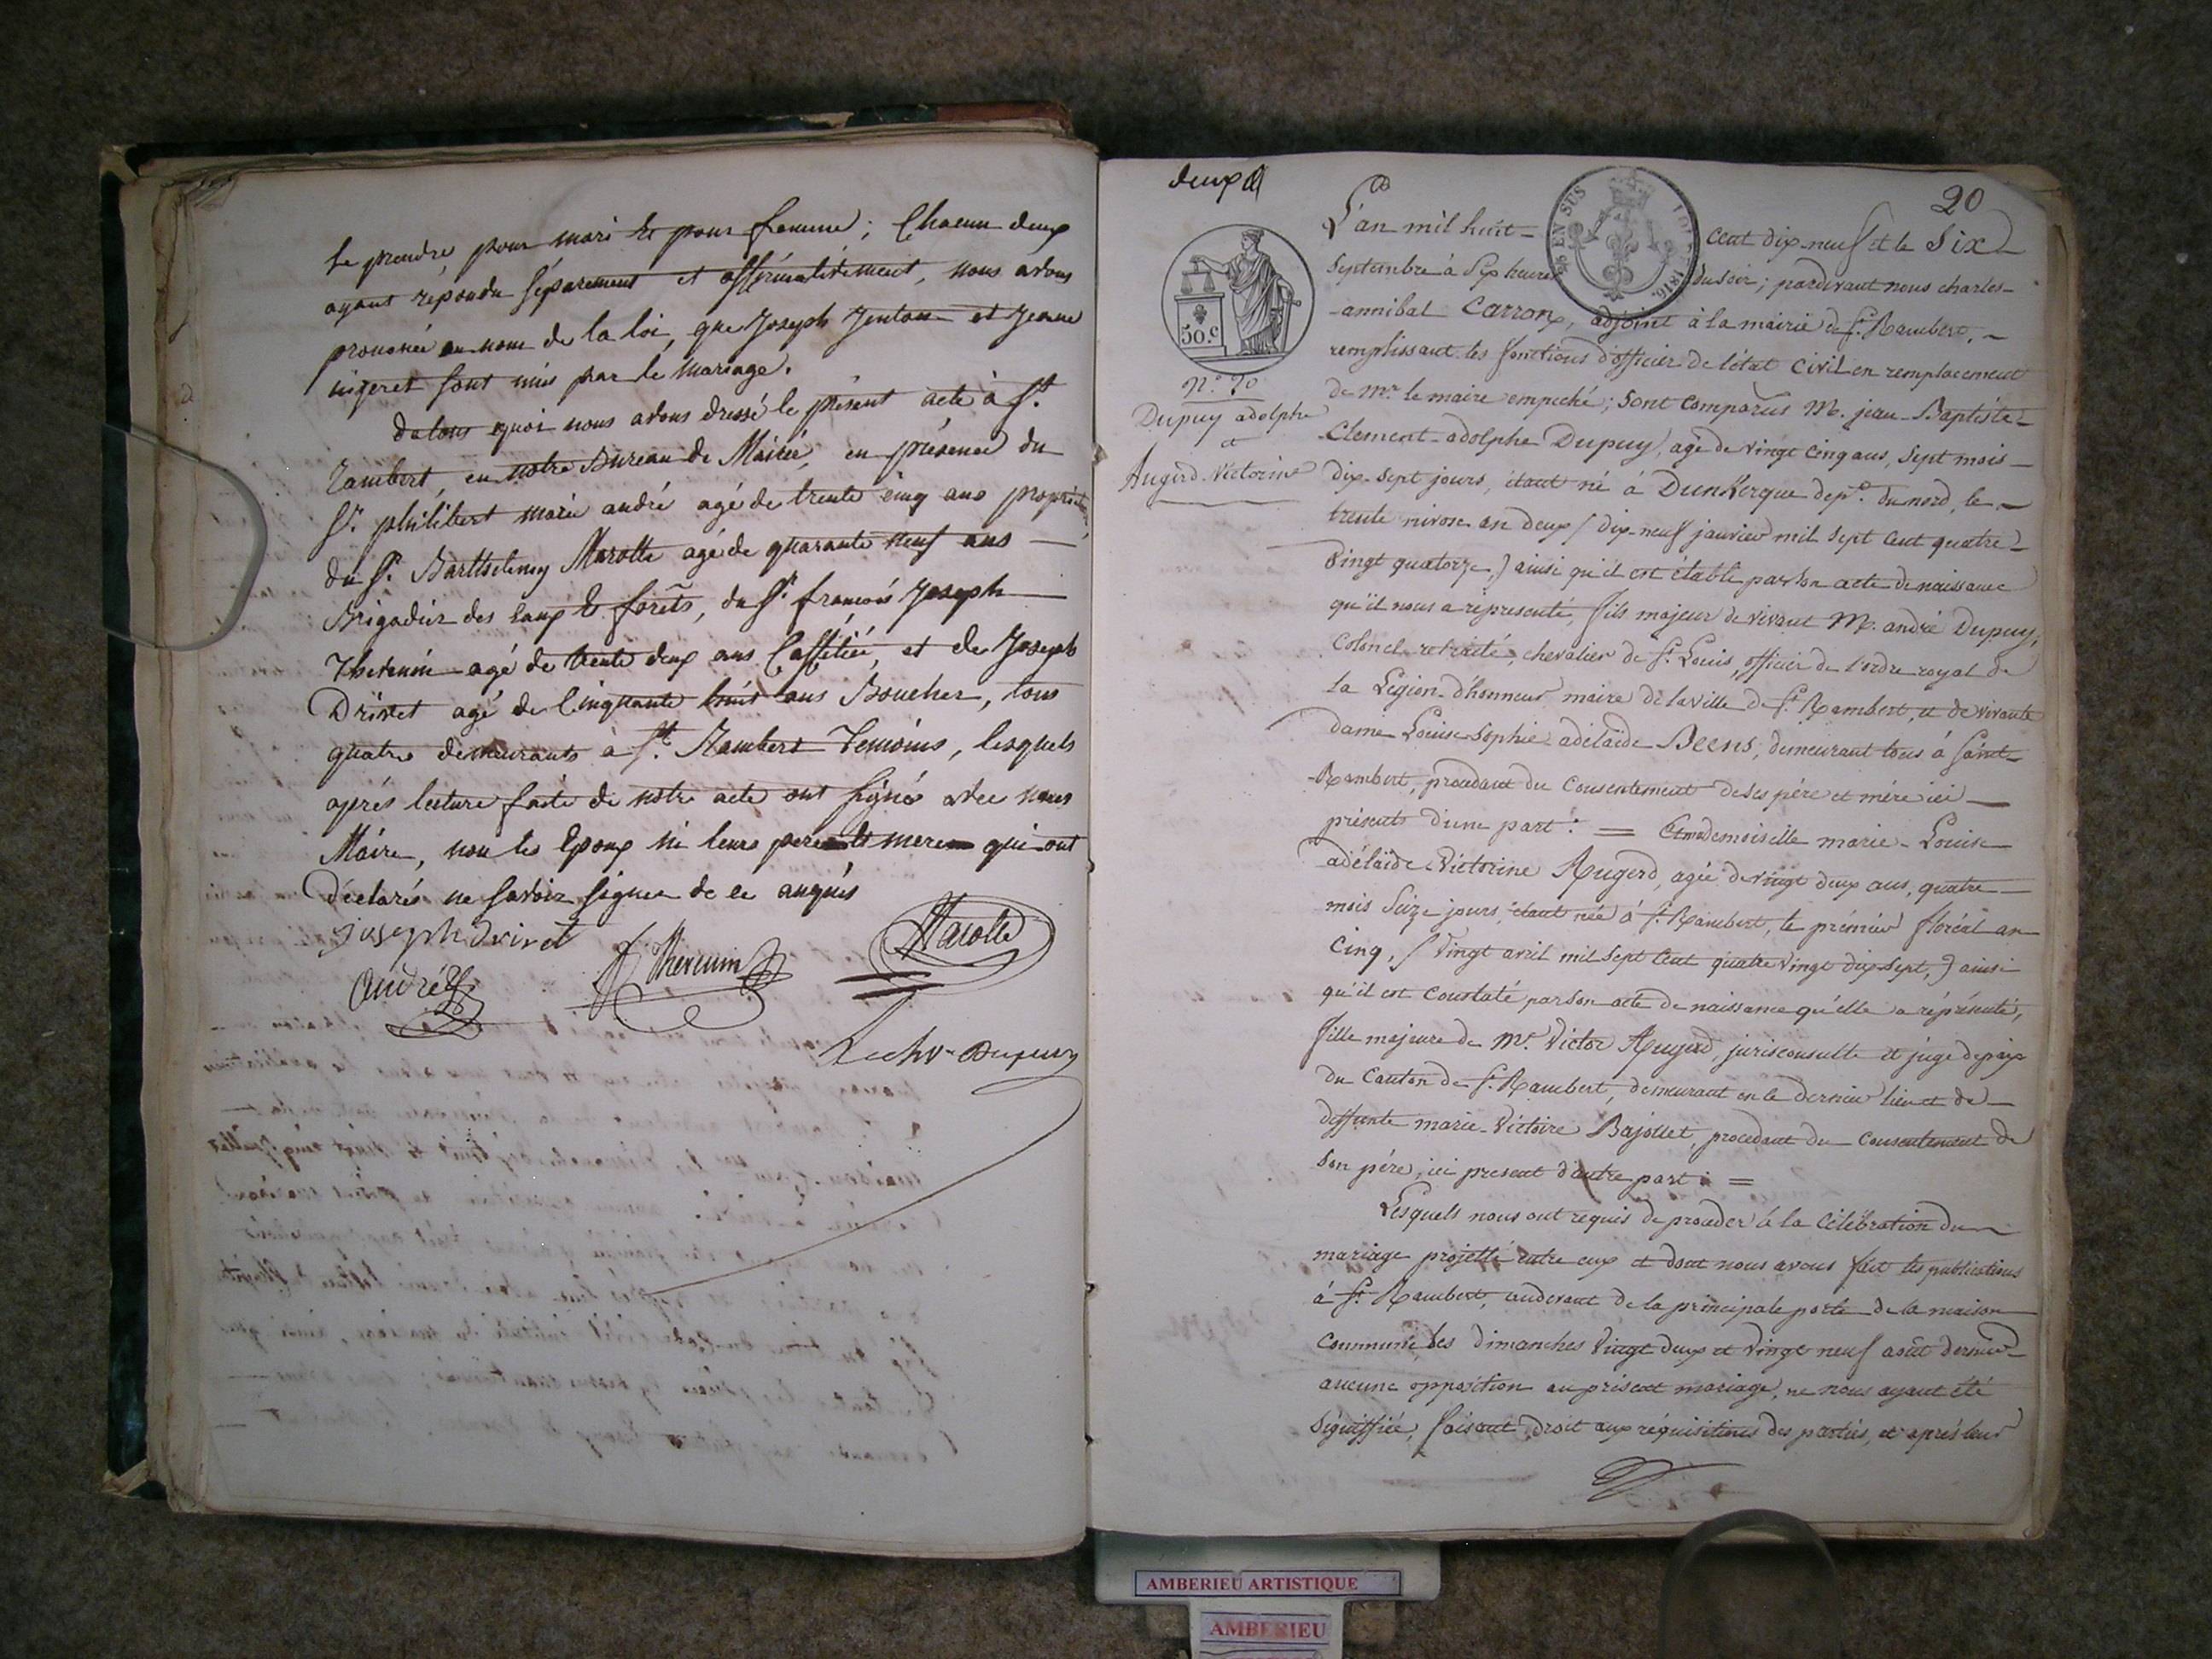 se prendre pour mari et pour femme; Chacun deux
ayant répondu séparement et affirmativement, nous avons
prononcé au nom de la loi, que Joseph et Jeanne
sont unis par le mariage.
de tous quoi nous avons dressé le présent acte à St.
Rambert, en notre Bureau de Mairie, en présence du
Sr. philibert marie andré agé de trente cinq ans
du Sr. Barthelemy Marotte agé de quarante neuf ans
Brigadier des eaux & forêts, du Sr. françois Joseph
Thevenin agé de trente deux ans et de Joseph
Drivet agé de Cinquante huit ans Boucher, tous
quatre demeurants à St. Rambert Temoins, lesquels
après lecture faite de notre acte ont signés avec nous
Maire, non les Epoux ni leurs pere et mere qui ont
déclarés ne savoir signer de ce enquis
joseph drivet
Marotte
Thevenin
andré
Le chr. Dupuy
deux
20
EN SUS
1816.
50.c
N.o 20
Dupuy adolphe
et
Augerd Victorine
L'an mil huit = cent dix-neuf et le Six
Septembre à Six heures du soir; pardevant nous charles-
-annibal Carron, adjoint à la mairie de St. Rambert, ~
remplissant les fonctions d'officier de l'état Civil en remplacement
de Mr. le maire empeché; sont comparus M. jean-Baptiste-
Clement-adolphe Dupuy, agé de vingt cinq ans, sept mois
dix-sept jours, étant né à Dunkerque dept. du nord, le
trente nivose an deux (dix-neuf janvier mil sept cent quatre-
vingt quatorze,) ainsi qu'il est établi par son acte de naissance
qu'il nous a représenté, fils majeur de vivant M. andré Dupuy,
Colonel retraité, chevalier de St. Louis, officier de l'ordre royal de
la Légion-d'honneur, maire de la ville de St. Rambert, et de vivante
dame Louise Sophie adélaïde Beens, demeurant tous à Saint-
-Rambert, procédant du Consentement de ses père et mère ici
présents d'une part: = Et mademoiselle marie-Louise
adélaïde Victorine Augerd, agée de vingt deux ans, quatre
mois Seize jours, étant née à St. Rambert, le premier floréal an
Cinq, (Vingt avril mil sept cent quatre vingt dix sept,) ainsi
qu'il est constaté par son acte de naissance qu'elle a réprésenté,
fille majeure de Mr. Victor Augerd, jurisconsulte et juge de paix
du Canton de St. Rambert, demeurant en ce dernier lieu et de
deffunte marie-Victoire Bajollet, procédant du Consentement de
son père, ici present d'autre part: =
Lesquels nous ont requis de procéder à la célébration du
mariage projetté entre eux et dont nous avons fait les publications
à St. Rambert, audevant de la principale porte de la maison
Commune les dimanches vingt deux et vingt neuf août dernier
aucune opposition au présent mariage, ne nous ayant été
signiffiée, faisant droit aux réquisitions des parties, et après leur
AMBERIEU ARTISTIQUE
AMBERIEU